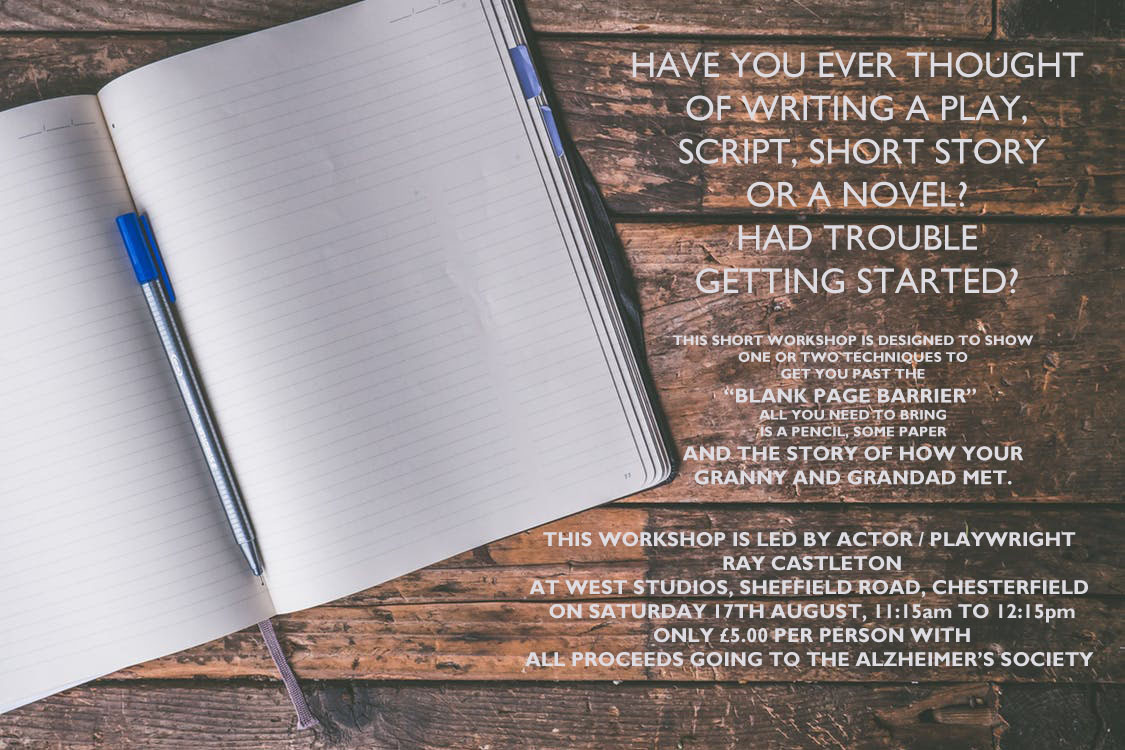 HAVE YOU EVER THOUGHT
OF WRITING A PLAY,
SCRIPT, SHORT STORY
OR A NOVEL?
HAD TROUBLE
GETTING STARTED?
THIS SHORT WORKSHOP IS DESIGNED TO SHOW
ONE OR TWO TECHNIQUES TO
GET YOU PAST THE
“BLANK PAGE BARRIER”
ALL YOU NEED TO BRING
IS A PENCIL, SOME PAPER
AND THE STORY OF HOW YOUR
GRANNY AND GRANDAD MET.
THIS WORKSHOP IS LED BY ACTOR / PLAYWRIGHT
RAY CASTLETON
AT WEST STUDIOS, SHEFFIELD ROAD, CHESTERFIELD
ON SATURDAY 17TH AUGUST, 11:15am TO 12:15pm
ONLY £5.00 PER PERSON WITH
ALL PROCEEDS GOING TO THE ALZHEIMER’S SOCIETY